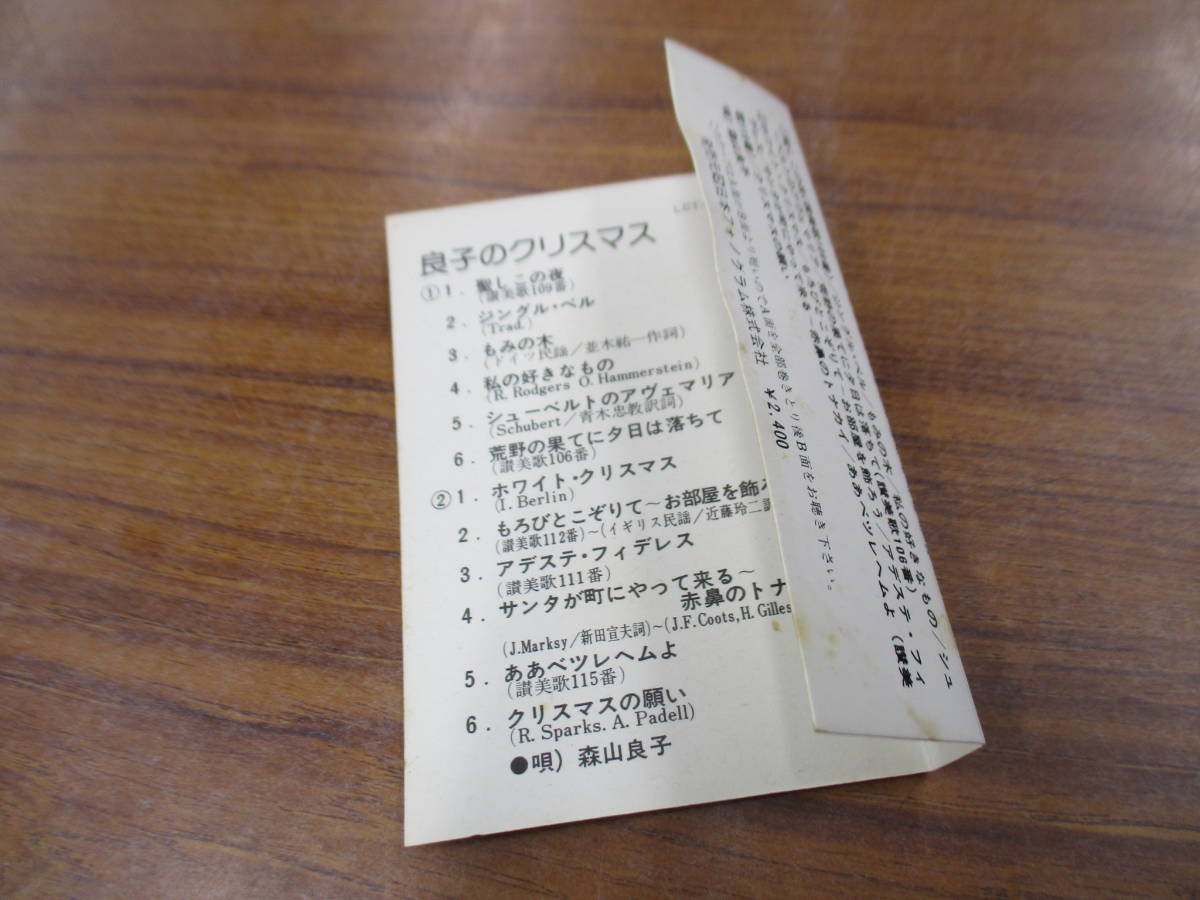 LCT
良子のクリスマス
①1. 聖しこの夜
(讃美歌109番)
2. ジングル・ベル
(Trad.)
3. もみの木
(ドイツ民謡/並木祐一作詞)
4. 私の好きなもの
(R. Rodgers O. Hammerstein)
5. シューベルトのアヴェマリア
(Schubert/青木忠教訳詞)
6. 荒野の果てに夕日は落ちて
(讃美歌106番)
②1. ホワイト・クリスマス
(I. Berlin)
2. もろびとこぞりて～お部屋を飾ろ
(讃美歌112番)～(イギリス民謡/近藤玲二
3. アデステ・フィデレス
(讃美歌111番)
4. サンタが町にやって来る～
赤鼻のトナ
(J.Marksy/新田宣夫詞)～(J.F.Coots,H.Gilles
5. ああベツレヘムよ
(讃美歌115番)
6. クリスマスの願い
(R. Sparks. A. Padell)
●唄) 森山良子
ジングル・ベル/もみの木/私の好きなもの/シュ
夕日は落ちて(讃美歌106番)
お部屋を飾ろう/アデステ・フィ
赤鼻のトナカイ/ああベツレヘムよ(讃美
A面を全部巻きとり後B面をお聴き下さい。
フォノグラム株式会社 ¥2,400